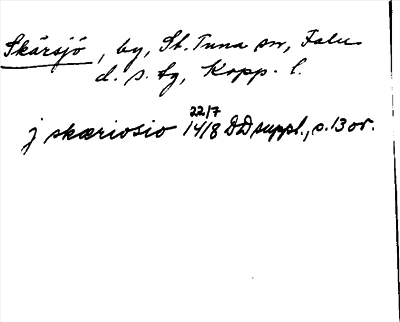 Skärsjö, by, St. Tuna sn, Falu
d. s. tg, Kopp. l.
j skæriosio 22/7 1418 DD suppl., s. 13 or.